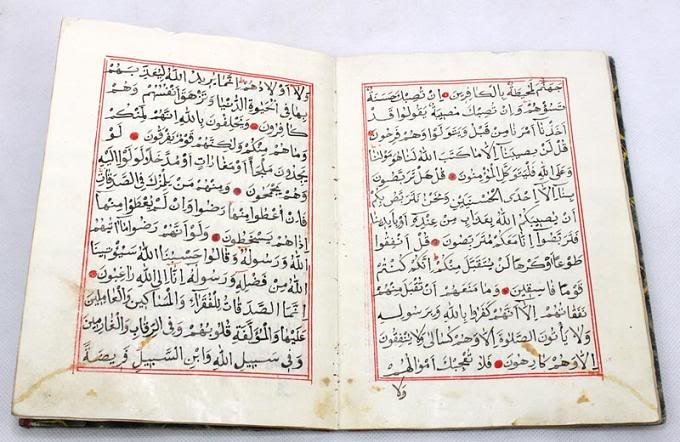 جَهَنَّمَ لَمُحِيطَةٌ بِالْكَافِرِينَ اِنْ تُصِبْكَ حَسَنَةٌ
تَسُؤْهُمْ وَاِنْ تُصِبْكَ مُصِيبَةٌ يَقُولُوا قَدْ
اَخَذْنَا اَمْرَنَا مِنْ قَبْلُ وَيَتَوَلَّوْا وَهُمْ فَرِحُونَ
قُلْ لَنْ يُصِيبَنَا اِلَّا مَا كَتَبَ اللهُ لَنَا هُوَ مَوْلَانَا
وَعَلَى اللهِ فَلْيَتَوَكَّلِ الْمُؤْمِنُونَ قُلْ هَلْ تَرَبَّصُونَ
بِنَا اِلَّا اِحْدَى الْحُسْنَيَيْنِ وَنَحْنُ نَتَرَبَّصُ بِكُمْ
اَنْ يُصِيبَكُمُ اللهُ بِعَذَابٍ مِنْ عِنْدِهِ اَوْ بِاَيْدِينَا
فَتَرَبَّصُوا اِنَّا مَعَكُمْ مُتَرَبِّصُونَ قُلْ اَنْفِقُوا
طَوْعًا اَوْ كَرْهًا لَنْ يُتَقَبَّلَ مِنْكُمْ اِنَّكُمْ كُنْتُمْ
قَوْمًا فَاسِقِينَ وَمَا مَنَعَهُمْ اَنْ تُقْبَلَ مِنْهُمْ
نَفَقَاتُهُمْ اِلَّا اَنَّهُمْ كَفَرُوا بِاللهِ وَبِرَسُولِهِ
وَلَا يَأْتُونَ الصَّلٰوةَ اِلَّا وَهُمْ كُسَالَى وَلَا يُنْفِقُونَ
اِلَّا وَهُمْ كَارِهُونَ فَلَا تُعْجِبْكَ اَمْوَالُهُمْ
وَلَا
وَلَا اَوْلَادُهُمْ اِنَّمَا يُرِيدُ اللهُ لِيُعَذِّبَهُمْ
بِهَا فِي الْحَيٰوةِ الدُّنْيَا وَتَزْهَقَ اَنْفُسُهُمْ وَهُمْ
كَافِرُونَ وَيَحْلِفُونَ بِاللهِ اِنَّهُمْ لَمِنْكُمْ
وَمَا هُمْ مِنْكُمْ وَلٰكِنَّهُمْ قَوْمٌ يَفْرَقُونَ لَوْ
يَجِدُونَ مَلْجَأً اَوْ مَغَارَاتٍ اَوْ مُدَّخَلًا لَوَلَّوْا اِلَيْهِ
وَهُمْ يَجْمَحُونَ وَمِنْهُمْ مَنْ يَلْمِزُكَ فِي الصَّدَقَاتِ
فَاِنْ اُعْطُوا مِنْهَا رَضُوا وَاِنْ لَمْ يُعْطَوْا مِنْهَا
اِذَا هُمْ يَسْخَطُونَ وَلَوْ اَنَّهُمْ رَضُوا مَا اٰتٰيهُمُ
اللهُ وَرَسُولُهُ وَقَالُوا حَسْبُنَا اللهُ سَيُؤْتِينَا
اللهُ مِنْ فَضْلِهِ وَرَسُولُهُ اِنَّا اِلَى اللهِ رَاغِبُونَ
اِنَّمَا الصَّدَقَاتُ لِلْفُقَرَاءِ وَالْمَسَاكِينِ وَالْعَامِلِينَ
عَلَيْهَا وَالْمُؤَلَّفَةِ قُلُوبُهُمْ وَفِي الرِّقَابِ وَالْغَارِمِينَ
وَفِي سَبِيلِ اللهِ وَابْنِ السَّبِيلِ فَرِيضَةً